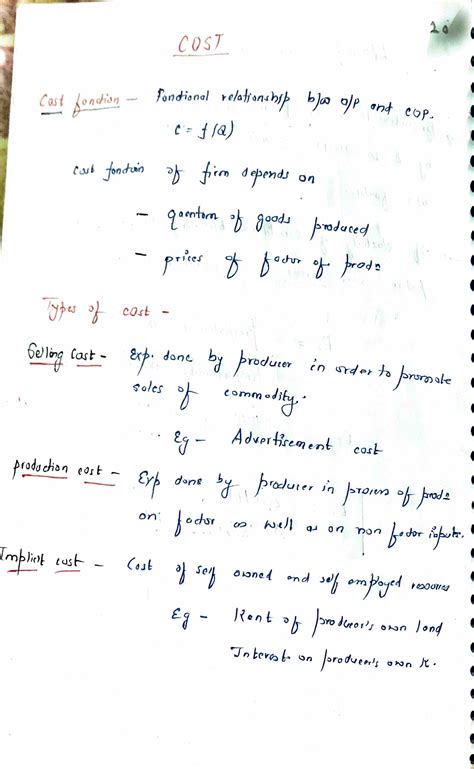 20
COST
Cost function - Functional relationship b/w o/p and COP.
C = f(Q)
Cost function of firm depends on
- quantum of goods produced
- prices of factor of prodn
Types of cost -
Selling Cost - Exp. done by producer in order to promote
sales of commodity.
Eg - Advertisement cost
production cost - Exp done by producer in process of prodn
on factor as well as on non factor inputs.
Implicit cost - Cost of self owned and self employed resources
Eg - Rent of producer's own land
Interest on producer's own K.